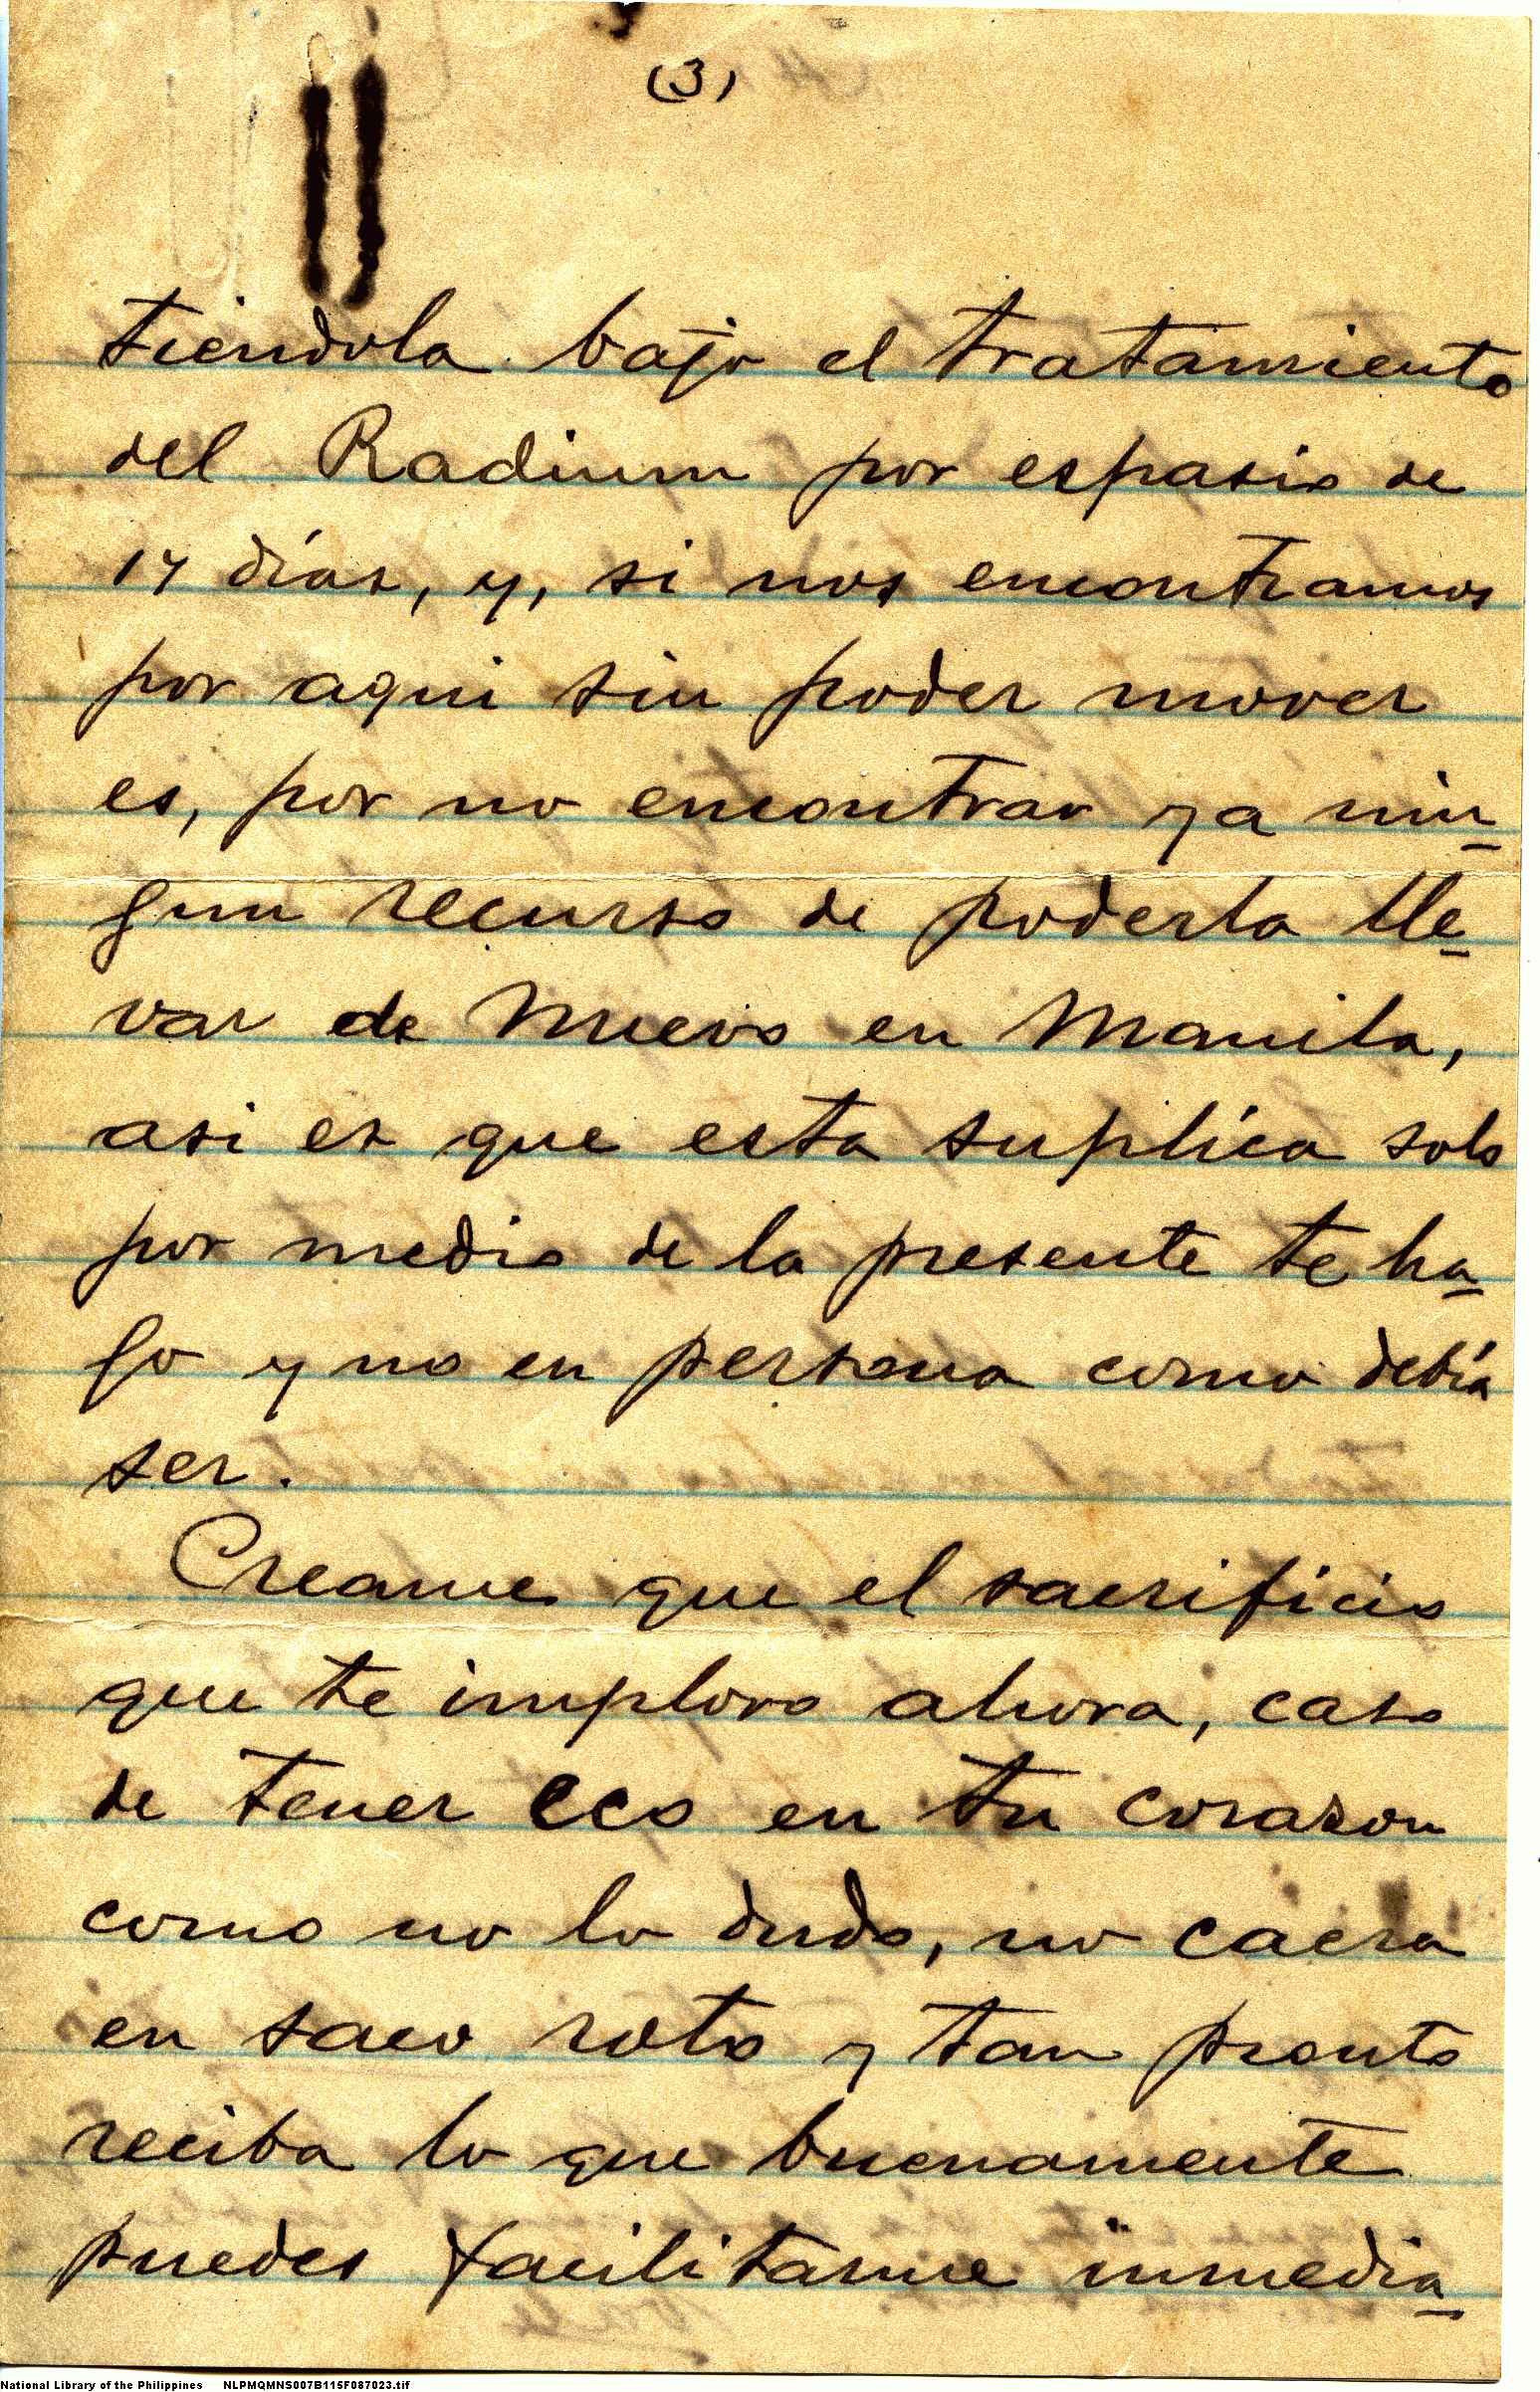 (3)
tiendola bajo el tratamiento
del Radium por espasio de
17 días, y, si nos encontramos
por aqui sin poder mover
es, por no encontrar ya nin-
gun recurso de poderla lle-
var de nuevo en Manila,
asi es que esta suplíca solo
por medio de la presente te ha-
go y no en persona como debía
ser.
Creame que el sacrificio
que te imploro ahora, caso
de tener eco en tu corazon
como no lo dudo, no caera
en saco roto y tan pronto
reciba lo que buenamente
puedes facilitarme inmedia-
National Library of the Philippines NLPMQMNS007B115F087023.tif